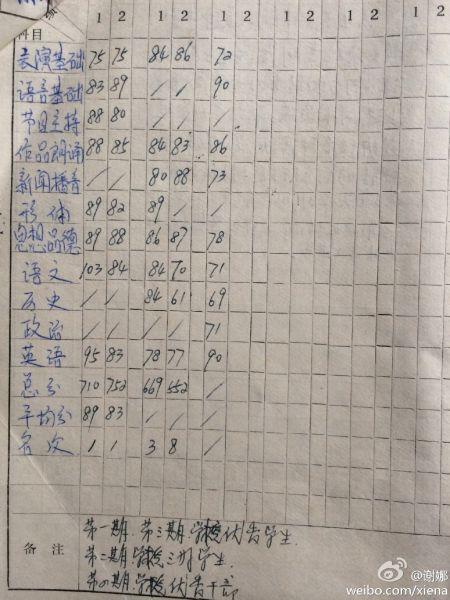 科目 1 2 1 2 1 2 1 2 1 2 1 2
表演基础 75 75 84 86 72
语言基础 83 89 / / 90
节目主持 88 80
作品朗诵 88 85 84 83 86
新闻播音 / / 80 88 73
形体 89 82 89 / /
思想品德 89 88 86 87 78
语文 103 84 84 70 71
历史 / / 84 61 69
政治 / / / / 71
英语 95 83 78 77 90
总分 710 752 669 552 /
平均分 89 83 / / /
名次 1 1 3 8 /
备注
第一期.第三期.学校优秀学生.
第二期.学校三好学生.
第四期.学校优秀干部
@谢娜
weibo.com/xiena